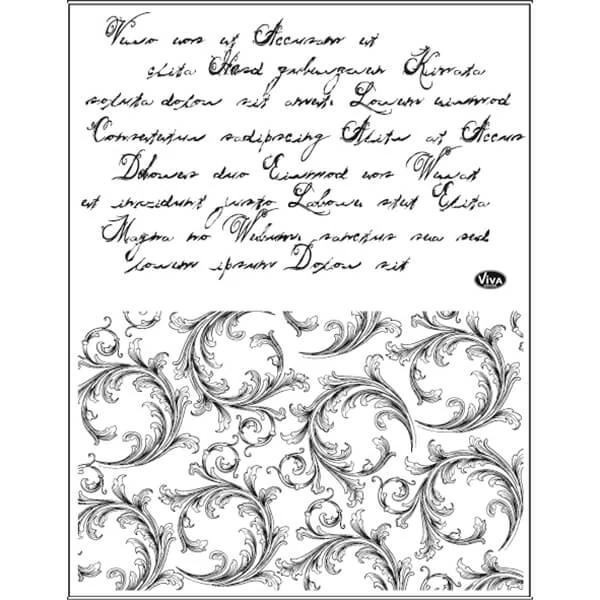 Vewo eos et Accusam et
clita Hasd gubengren Kimata
soluta dolou sit amet. Lowem eiumod
Consetetur sadipscing Alitu at Accus
Dolowes duo Eiusmod eos Wewat
et invidunt justo Labowe stet Elita
Magna no Webum. sanctus sea sed
lowem ipsum Dolou sit
VIVA